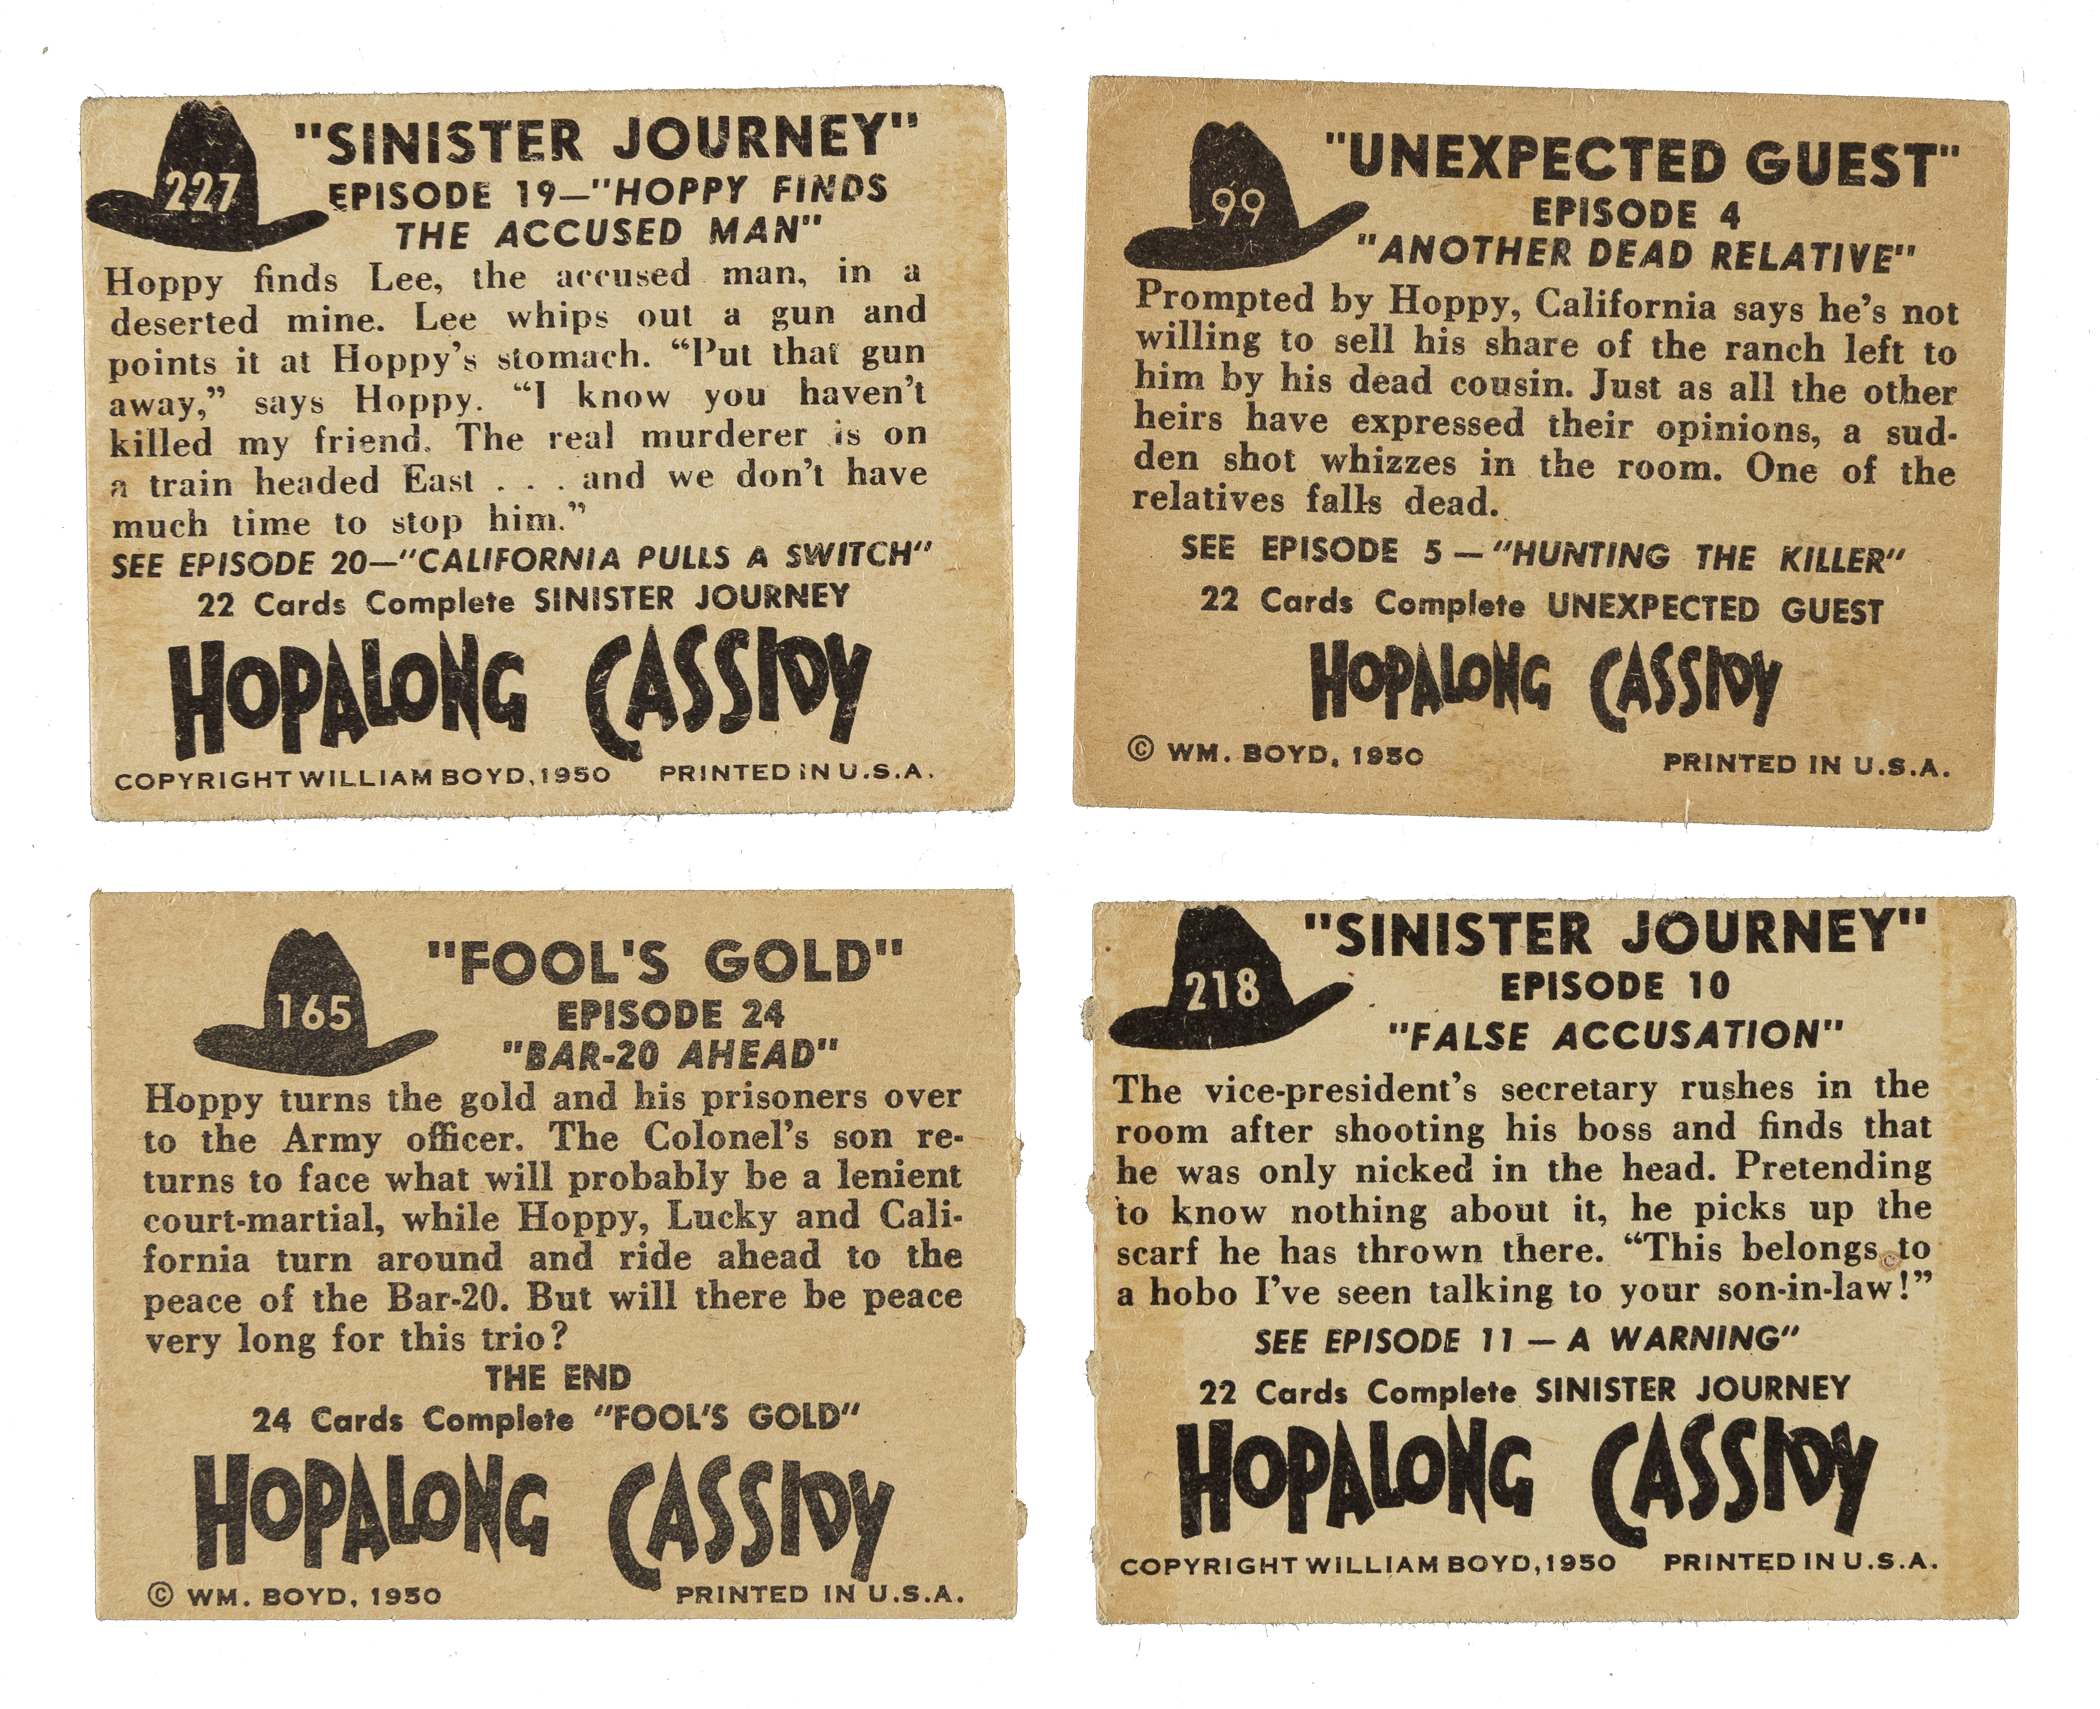 227
"SINISTER JOURNEY"
EPISODE 19—"HOPPY FINDS
THE ACCUSED MAN"
Hoppy finds Lee, the accused man, in a
deserted mine. Lee whips out a gun and
points it at Hoppy's stomach. “Put that gun
away,” says Hoppy. “I know you haven't
killed my friend. The real murderer is on
a train headed East . . . and we don't have
much time to stop him.”
SEE EPISODE 20—"CALIFORNIA PULLS A SWITCH"
22 Cards Complete SINISTER JOURNEY
HOPALONG CASSIDY
COPYRIGHT WILLIAM BOYD, 1950 PRINTED IN U.S.A.
99
"UNEXPECTED GUEST"
EPISODE 4
"ANOTHER DEAD RELATIVE"
Prompted by Hoppy, California says he's not
willing to sell his share of the ranch left to
him by his dead cousin. Just as all the other
heirs have expressed their opinions, a sud-
den shot whizzes in the room. One of the
relatives falls dead.
SEE EPISODE 5—"HUNTING THE KILLER"
22 Cards Complete UNEXPECTED GUEST
HOPALONG CASSIDY
© WM. BOYD, 1950 PRINTED IN U.S.A.
165
"FOOL'S GOLD"
EPISODE 24
"BAR-20 AHEAD"
Hoppy turns the gold and his prisoners over
to the Army officer. The Colonel's son re-
turns to face what will probably be a lenient
court-martial, while Hoppy, Lucky and Cali-
fornia turn around and ride ahead to the
peace of the Bar-20. But will there be peace
very long for this trio?
THE END
24 Cards Complete "FOOL'S GOLD"
HOPALONG CASSIDY
© WM. BOYD, 1950 PRINTED IN U.S.A.
218
"SINISTER JOURNEY"
EPISODE 10
"FALSE ACCUSATION"
The vice-president's secretary rushes in the
room after shooting his boss and finds that
he was only nicked in the head. Pretending
to know nothing about it, he picks up the
scarf he has thrown there. “This belongs to
a hobo I've seen talking to your son-in-law!”
SEE EPISODE 11—A WARNING"
22 Cards Complete SINISTER JOURNEY
HOPALONG CASSIDY
COPYRIGHT WILLIAM BOYD, 1950 PRINTED IN U.S.A.